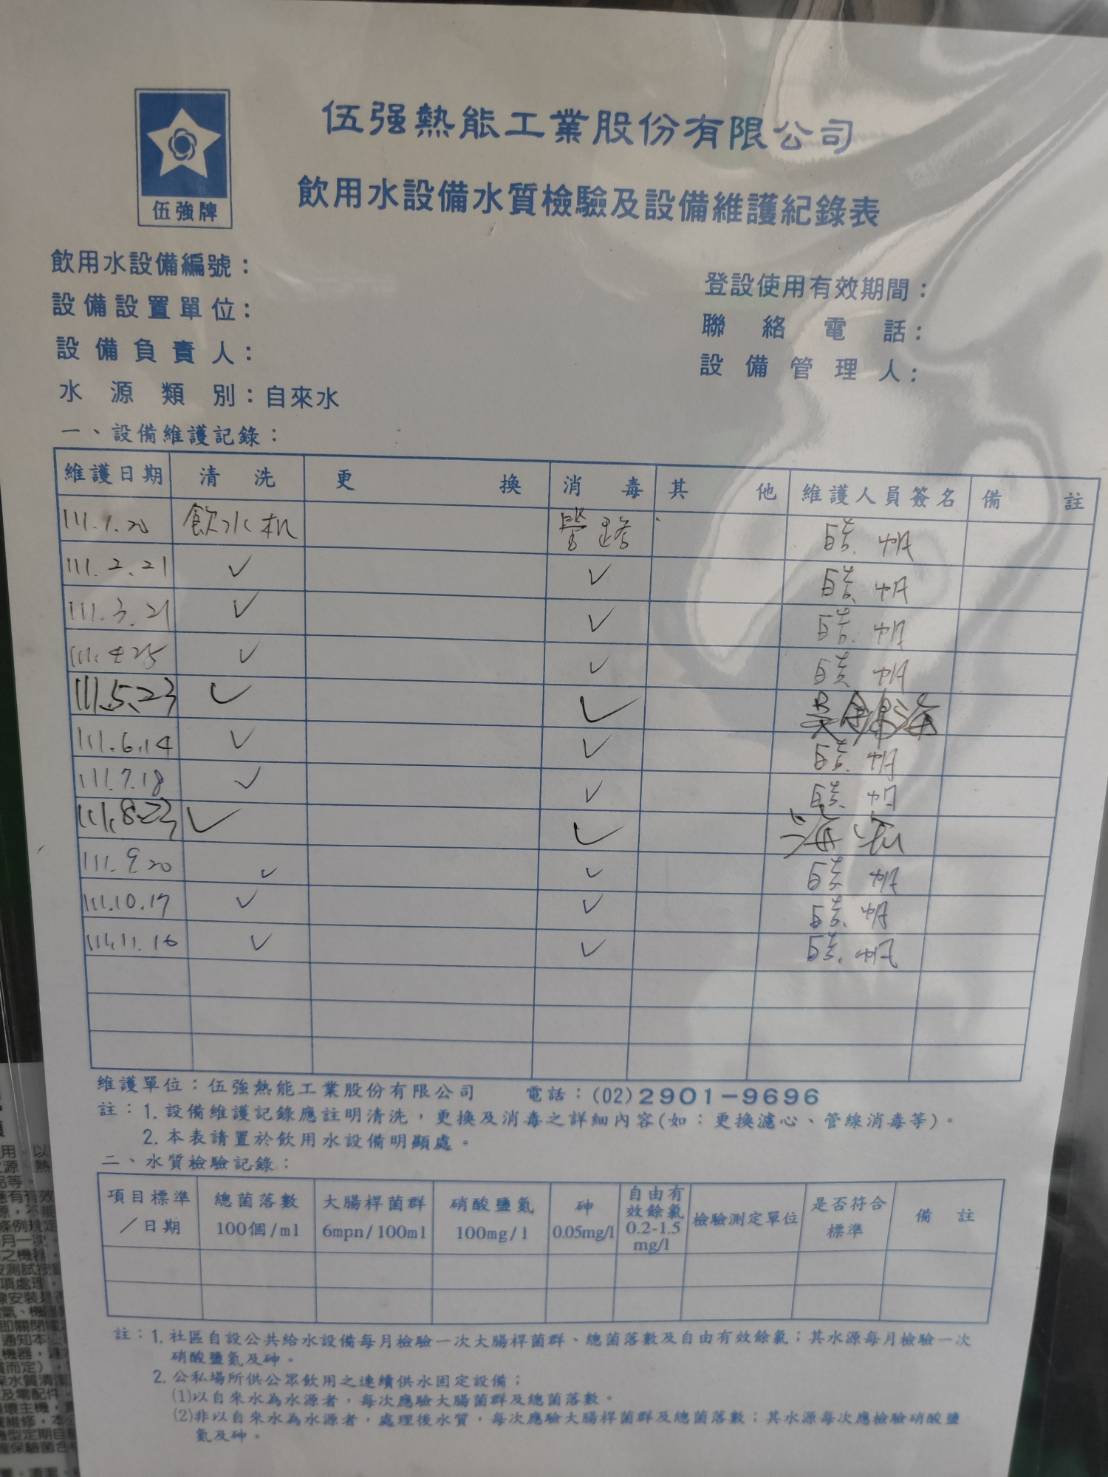 伍強牌
伍強熱能工業股份有限公司
飲用水設備水質檢驗及設備維護紀錄表
飲用水設備編號：
設備設置單位：
設備負責人：
水源類別：自來水
登設使用有效期間：
聯絡電話：
設備管理人：
一、設備維護記錄：
維護日期 清洗 更換 消毒 其他 維護人員簽名 備註
111.1.20 飲水机 管路
111.2.21 ✓ ✓
111.3.21 ✓ ✓
111.4.25 ✓ ✓
111.5.23 ✓ ✓
111.6.14 ✓ ✓
111.7.18 ✓ ✓
111.8.23 ✓ ✓
111.9.20 ✓ ✓
111.10.17 ✓ ✓
111.11.16 ✓ ✓
維護單位：伍強熱能工業股份有限公司 電話：(02)2901-9696
註：1.設備維護記錄應註明清洗，更換及消毒之詳細內容(如：更換濾心、管線消毒等)。
2.本表請置於飲用水設備明顯處。
二、水質檢驗記錄：
項目標準／日期 總菌落數 100個/ml 大腸桿菌群 6mpn/100ml 硝酸鹽氮 100mg/l 砷 0.05mg/l 自由有效餘氯 0.2-1.5 mg/l 檢驗測定單位 是否符合標準 備註
註：1.社區自設公共給水設備每月檢驗一次大腸桿菌群、總菌落數及自由有效餘氯；其水源每月檢驗一次
硝酸鹽氮及砷。
2.公私場所供公眾飲用之連續供水固定設備：
(1)以自來水為水源者，每次應驗大腸菌群及總菌落數。
(2)非以自來水為水源者，處理後水質，每次應驗大腸桿菌群及總菌落數；其水源每次應檢驗硝酸鹽
氮及砷。